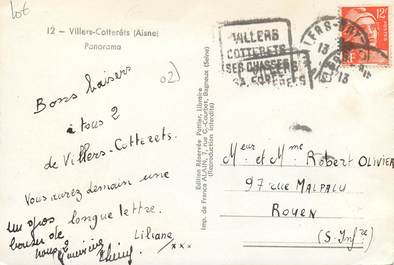 Lot
12 - Villers-Cotterêts (Aisne)
Panorama
02)
Bons baisers
à tous 2
de Villers-Cotterets.
Vous aurez demain une
longue lettre.
Liliane
xxx
un gros
baiser de
nous 2
Edition Réservée Potier, Libraire
Imp. de France ALAIN, 1, rue G.-Courbet, Bagneux (Seine)
(Reproduction interdite)
VILLERS
COTTERETS
SES CHASSES
SA FORET
12F
POSTES
RF
Meur et Mme Robert OLIVIER
97 rue MALPALU
ROUEN
(S. Infre)